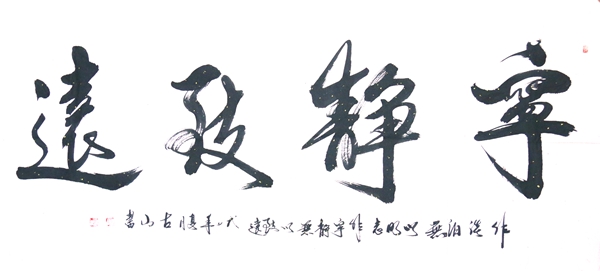 寧靜致遠
非淡泊無以明志非寧靜無以致遠 古山書